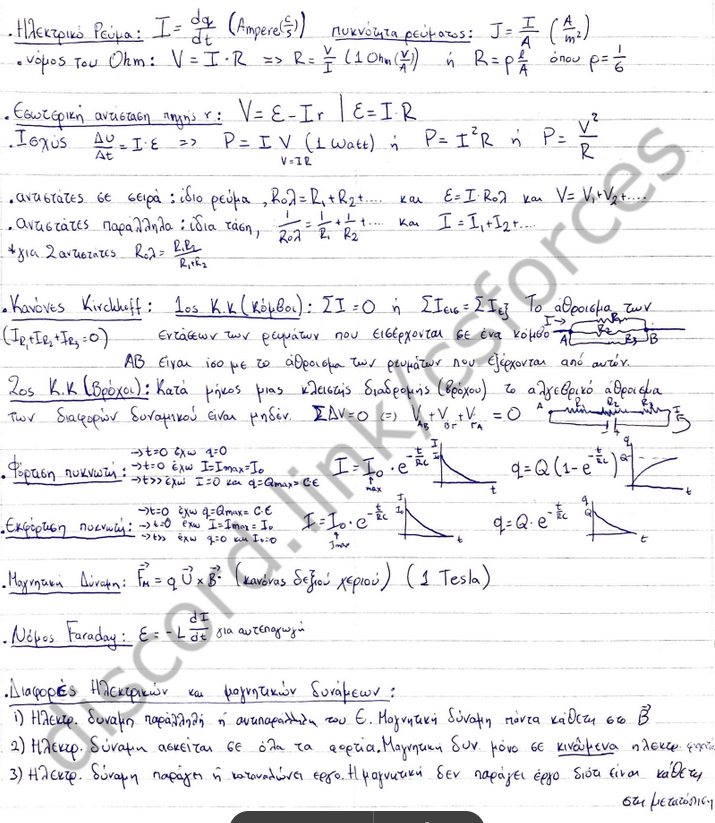 . Ηλεκτρικό Ρεύμα: I = dq/dt (Ampere (C/s)) πυκνότητα ρεύματος: J = I/A (A/m²)
. νόμος του Ohm: V = I·R => R = V/I (1 Ohm (V/A)) ή R = ρ l/A όπου ρ = 1/6
. Εσωτερική αντίσταση πηγής r: V = ε - Ir | ε = I·R
. Ισχύς ΔU/Δt = I·ε => P = I V (1 Watt) ή P = I²R ή P = V²/R
V=IR
. αντιστάτες σε σειρά: ίδιο ρεύμα, Rολ = R₁+R₂+.... και ε = I·Rολ και V = V₁+V₂+....
. αντιστάτες παράλληλα: ίδια τάση, 1/Rολ = 1/R₁ + 1/R₂ + ... και I = I₁+I₂+...
* για 2 αντιστάτες Rολ = R₁R₂/R₁+R₂
. Κανόνες Kirchhoff: 1ος Κ.Κ (Κόμβοι): ΣI=0 ή ΣIεισ = ΣIεξ Το άθροισμα των
(I_R₁+I_R₂+I_R₃=0) εντάσεων των ρευμάτων που εισέρχονται σε ένα κόμβο
I R₁ R₂ R₃ A B
AB είναι ίσο με το άθροισμα των ρευμάτων που εξέρχονται από αυτόν.
2ος Κ.Κ (Βρόχοι): Κατά μήκος μιας κλειστής διαδρομής (βρόχου) το αλγεβρικό άθροισμα
των διαφορών δυναμικού είναι μηδέν. ΣΔV=0 (=) V_AB + V_ΒΓ + V_ΓΑ = 0
A R₁ R₂ R₃ I
→ t=0 έχω q=0
. Φόρτιση πυκνωτή: → t=0 έχω I=Imax=I₀ I = I₀·e^(-t/RC) q = Q(1-e^(-t/RC))
max
→ t>> έχω I=0 και q=Qmax=C·ε
I I₀ t q Q t
→ t=0 έχω q=Qmax=C·ε
. Εκφόρτιση πυκνωτή: → t=0 έχω I=Imax=I₀ I = I₀·e^(-t/RC) q = Q·e^(-t/RC)
→ t>> έχω q=0 και I₀=0
Imax
I I₀ t q Q t
. Μαγνητική Δύναμη: F⃗м = q U⃗ × B⃗ (κανόνας δεξιού χεριού) (1 Tesla)
. Νόμος Faraday: ε = -L dI/dt για αυτεπαγωγή
. Διαφορές Ηλεκτρικών και μαγνητικών δυνάμεων:
1) Ηλεκτρ. δύναμη παράλληλη ή αντιπαράλληλη του Ε. Μαγνητική δύναμη πάντα κάθετη στο B⃗
2) Ηλεκτρ. δύναμη ασκείται σε όλα τα φορτία. Μαγνητική δυν. μόνο σε κινούμενα ηλεκτρ.
3) Ηλεκτρ. δύναμη παράγει ή καταναλώνει έργο. Η μαγνητική δεν παράγει έργο διότι είναι κάθετη
στη μετατόπιση
discord.link/csforces